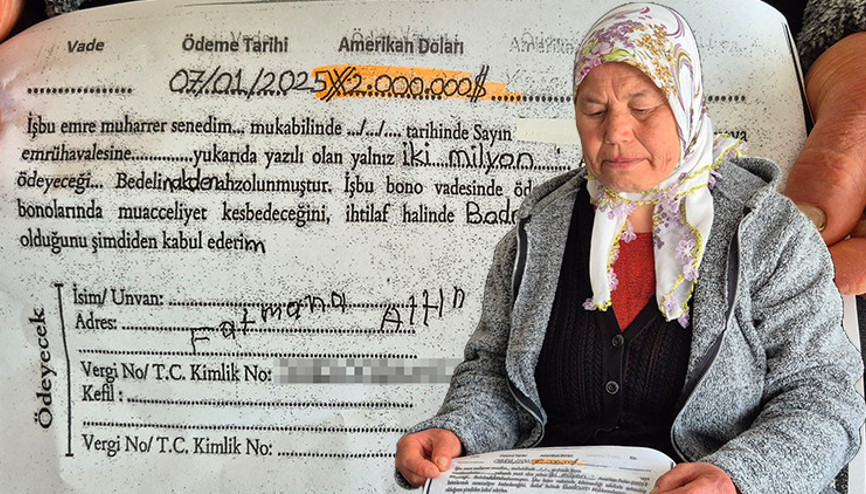 Vade Ödeme Tarihi Amerikan Doları
07/01/2025 2.000.000$
İşbu emre muharrer senedim... mukabilinde .../.../.... tarihinde Sayın
emrühavalesine..............yukarıda yazılı olan yalnız iki milyon
ödeyeceği... Bedeli nakden ahzolunmuştur. İşbu bono vadesinde
bonolarında muacceliyet kesbedeceğini, ihtilaf halinde
olduğunu şimdiden kabul ederim
Ödeyecek
İsim/ Unvan:
Adres:
Fatmana Altın
Vergi No/ T.C. Kimlik No:
Kefil :
Vergi No/ T.C. Kimlik No: